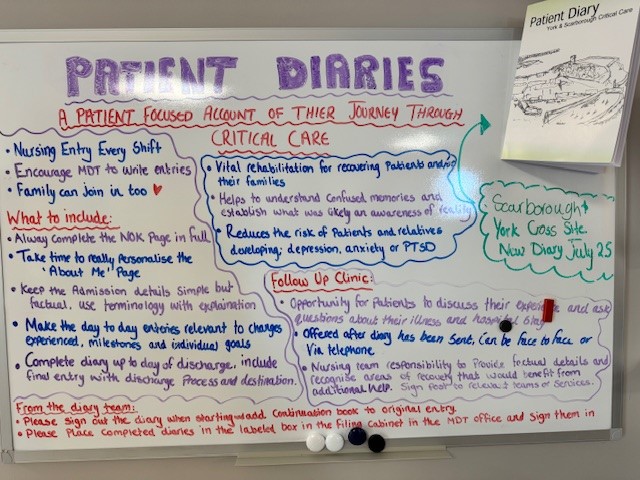 PATIENT DIARIES
A PATIENT FOCUSED ACCOUNT OF THIER JOURNEY THROUGH
CRITICAL CARE
• Nursing Entry Every Shift
• Encourage MDT to write entries
• Family can join in too ♥
What to include:
• Alway Complete the NOK Page in full
• Take time to really Personalise the
"About Me" Page
• Keep the Admission details Simple but
factual, use terminology with explaination
• Make the day to day entries relevant to changes
experienced, milestones and individual goals
• Complete diary up to day of discharge, include
final entry with discharge Process and destination.
• Vital rehabilitation for recovering Patients and/or
their families
• Helps to understand confused memories and
establish what was likely an awareness of reality
• Reduces the risk of Patients and relatives
developing; depression, anxiety or PTSD
Patient Diary
York & Scarborough Critical Care
Scarborough +
York Cross Site.
New Diary July 25
Follow Up Clinic:
• Opportunity for Patients to discuss their experience and ask
questions about their illness and hospital stay
• Offered after diary has been sent, Can be face to face or
Via telephone.
• Nursing team responsibility to Provide factual details and
recognise areas of recovery that would benefit from
additional help. Sign Post to relevant teams or services.
From the diary team:
• Please sign out the diary when starting + add Continuation book to original entry.
• Please Place Completed diaries in the labeled box in the Filing Cabinet in the MDT office and Sign them in